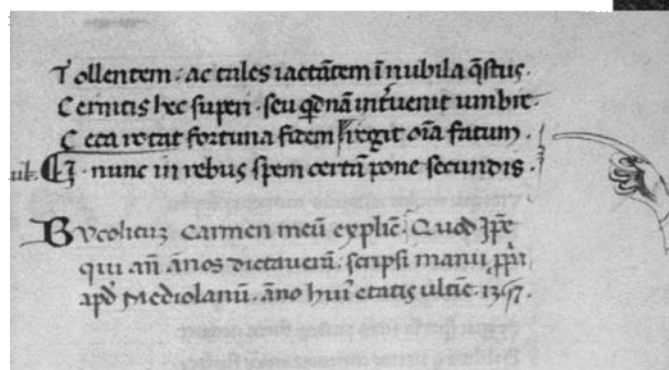 Tollentem . ac tales iactātem ī nubila q̄stus.
Cernitis hec superi . seu qd̄nā int̄uenit umbre.
Ceca rotat fortuna fidem regit oīa fatum .
I . nunc in rebus spem certā pone secundis .
Bucolicuz carmen meū explic̄. Quod Ip̄e
qui an̄ ānos dictauerā . scripsi manu ꝓpria
apd̄ Mediolanū . āno hui' etatis ultīe . 1357.